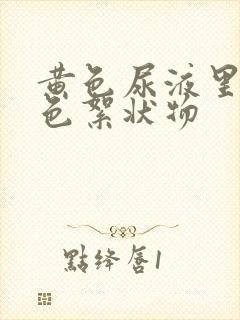 黄色尿液里
色絮状物
點绛唇1